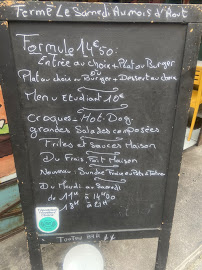 Fermé Le Samedi Au mois d'Août
Formule 14€50:
Entrée au choix + Plat ou Burger
ou
Plat au choix ou Burger + Dessert au choix
Menu Etudiant 10€
Croques - Hot-Dog
grandes Salades composées
Frites et Sauces Maison
Du Frais, Fait Maison
Nouveau: Sundae Fraise ou
Du Mardi au Samedi
de 11H à 14H00
18H à 21H